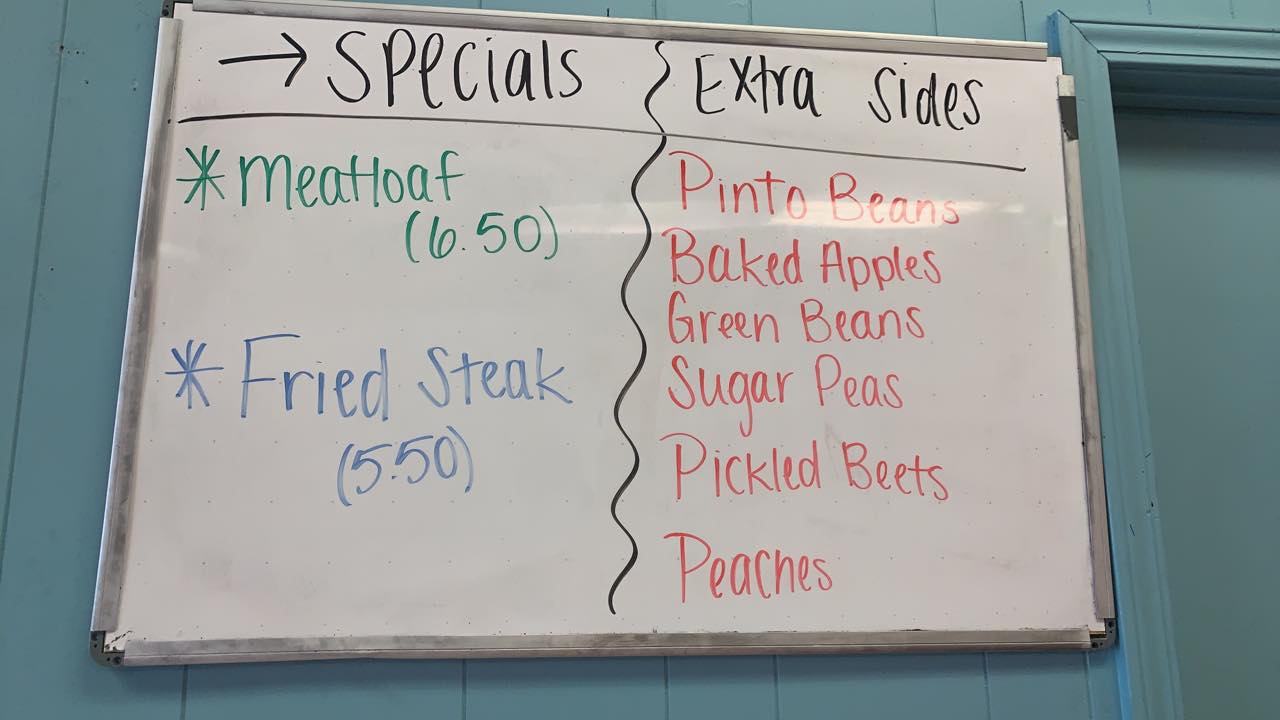 → Specials
* Meatloaf
(6.50)
* Fried Steak
(5.50)
Extra Sides
Pinto Beans
Baked Apples
Green Beans
Sugar Peas
Pickled Beets
Peaches